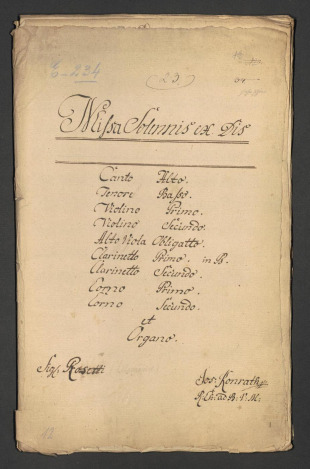 6-234
23
Missa Solemnis ex Dis
Canto Alto.
Tenore Basso.
Violino Primo.
Violino Secundo.
Alto Viola Obligatto.
Clarinetto Primo. in B.
Clarinetto Secundo.
Corno Primo.
Corno Secundo.
et
Organo.
Sig. Rosetti
Jos: Konrath